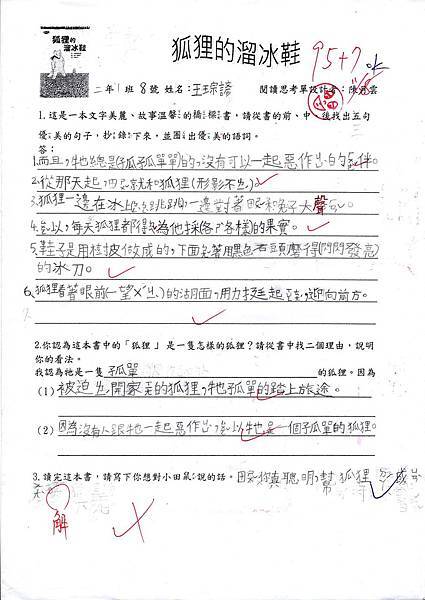 狐狸的溜冰鞋
狐狸的
溜冰鞋
95+7
二年1班8號 姓名:王琮諺 閱讀思考單設計者:陳 雲
1.這是一本文字美麗、故事溫馨的橋樑書,請從書中的前、中、後找出五句
優美的句子,抄錄下來,並圈出優美的語詞。
答:
1.而且,牠總是(孤孤單單)的,沒有可以一起惡作出的 伴。
2.從那天起,四 就和狐狸(形影不出)
3.狐狸一邊在冰上 跳,一邊對著 和兔子大聲
4. 以,每天狐狸都 為他採各 各樣的果實。
5.鞋子是用樹皮做成的,下面 著用黑色石頭磨得(閃閃發亮)
的冰刀。
6.狐狸看著眼前(一望ㄨˊ出)的湖面,用力 起 ,迎向前方。
2.你認為這本書中的「狐狸」是一隻怎樣的狐狸?請從書中找二個理由,說明
你的看法。
我認為牠是一隻 孤單 的狐狸。因為
(1)被迫出開家 的狐狸,牠孤單的踏上旅途。
(2)因為沒有人跟牠一起惡作出, 以牠是一個孤單的狐狸。
3.讀完這本書,請寫下你想對小田鼠說的話。 你真聰明,幫狐狸 成
解